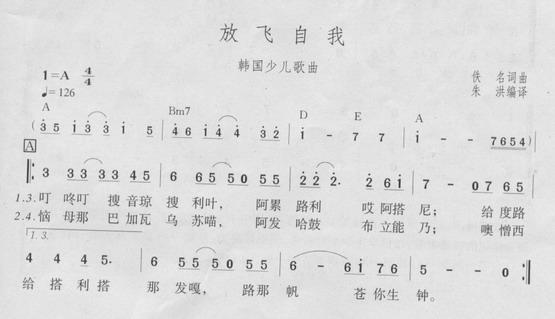 放飞自我
韩国少儿歌曲
1=A 4/4
♩=126
佚名词曲
朱洪编译
A Bm7 D E A
( 3 5 i 3 3 i 5 | 4 6 i 4 4 3 2 | i - 7 7 | i - - 7654 )
A
‖: 3 3 3 3 3 4 5 | 6 6 5 5 0 5 5 | 2 2 2. 2 6 i | 7 - 0 7 6 5 |
1.3.叮 咚叮 搜 音琼 搜 利叶, 阿累 路利 哎 阿搭 尼; 给 度路
2.4.恼 母那 巴 加瓦 乌 苏喵, 阿发 哈鼓 布 立能 乃; 噢 憎西
1. 3.
4 4 4 5. | 6 5 5 0 5 5 | 6 - 6 i 7 6 | 5 - - 0 :‖
给 搭 利 搭 那 发嘎, 路那 帆 苍 你生 钟。